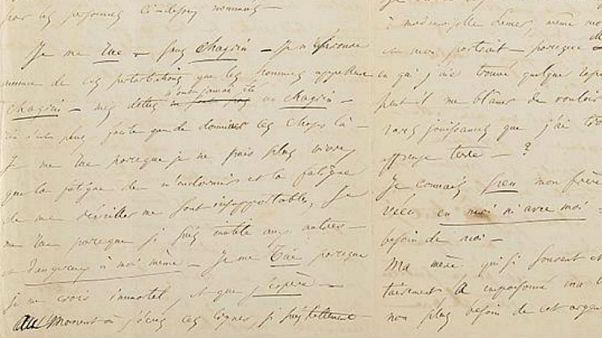 par les personnes ci-dessus nommées –
Je me tue – sans chagrin – Je n'éprouve
aucune de ces perturbations que les hommes appellent
chagrin – mes dettes n'ont jamais été un chagrin –
Rien n'est plus facile que de dominer ces choses là –
Je me tue parceque je ne puis plus vivre,
que la fatigue de m'endormir et la fatigue
de me réveiller me sont insupportables, Je
me tue parceque je suis inutile aux autres –
et dangereux à moi même – Je me tue parceque
je me crois immortel, et que j'espère –
Au moment où j'écris ces lignes, je suis tellement
à mademoiselle Lemer, même mon
mon portrait – parceque
en qui j'aie trouvé quelque repos
peut-il me blamer de vouloir
rares jouissances que j'ai
affreuse terre – ?
Je connais peu mon frère
vécu en moi ni avec moi –
besoin de moi –
Ma mère, qui si souvent et
tairement a empoisonné ma
non plus besoin de cet argent